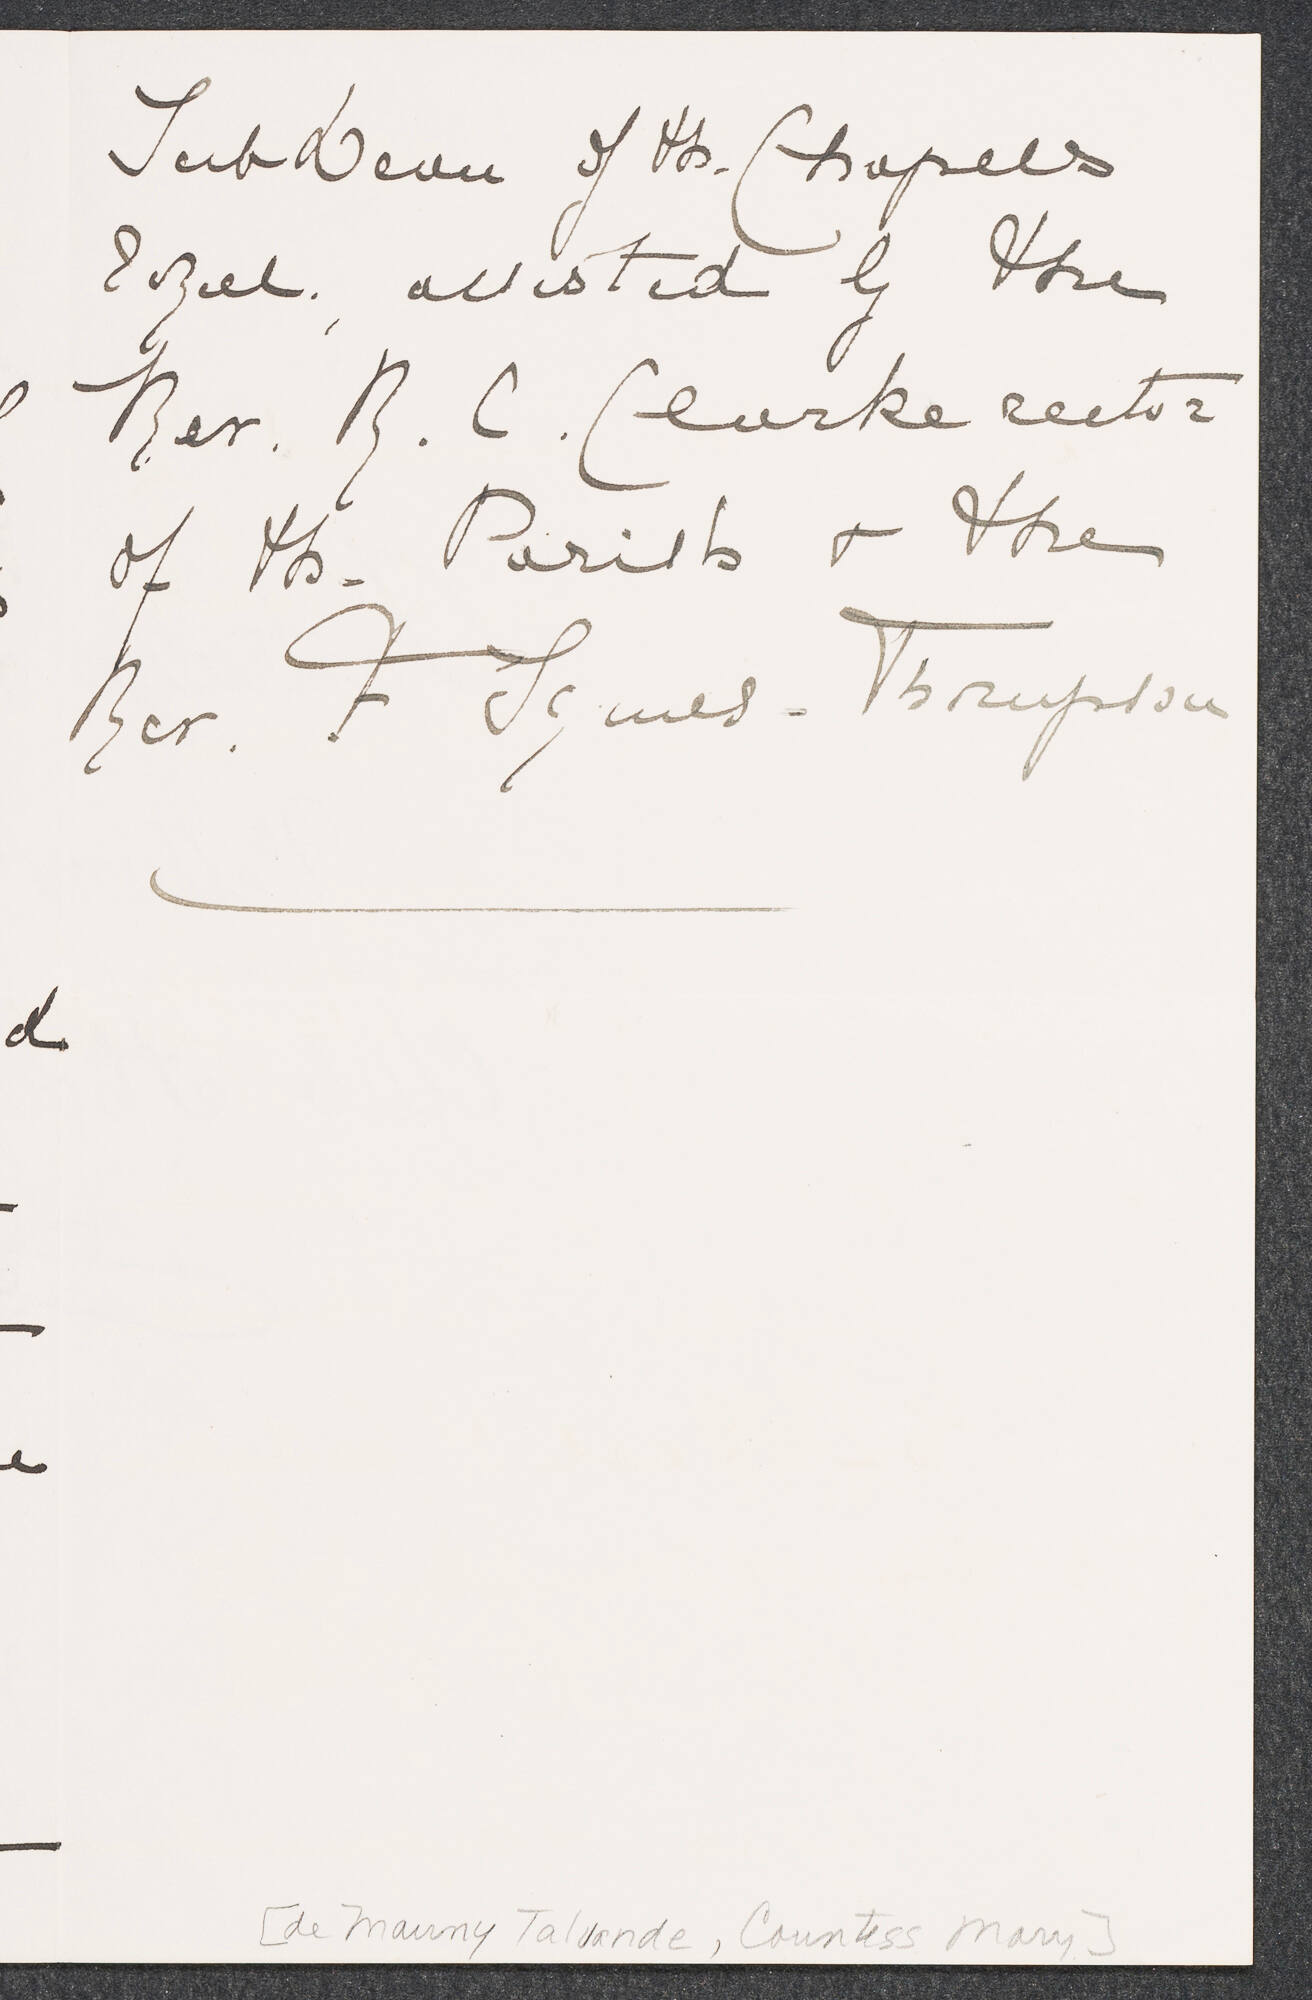 Sub Dean of th. Chapels
Royal., assisted by the
Rev. R. C. Clarke rector
of th. Parish + the
Rev. F Symes-Thompson
d
e
[de Mauny Talvande, Countess Mary]